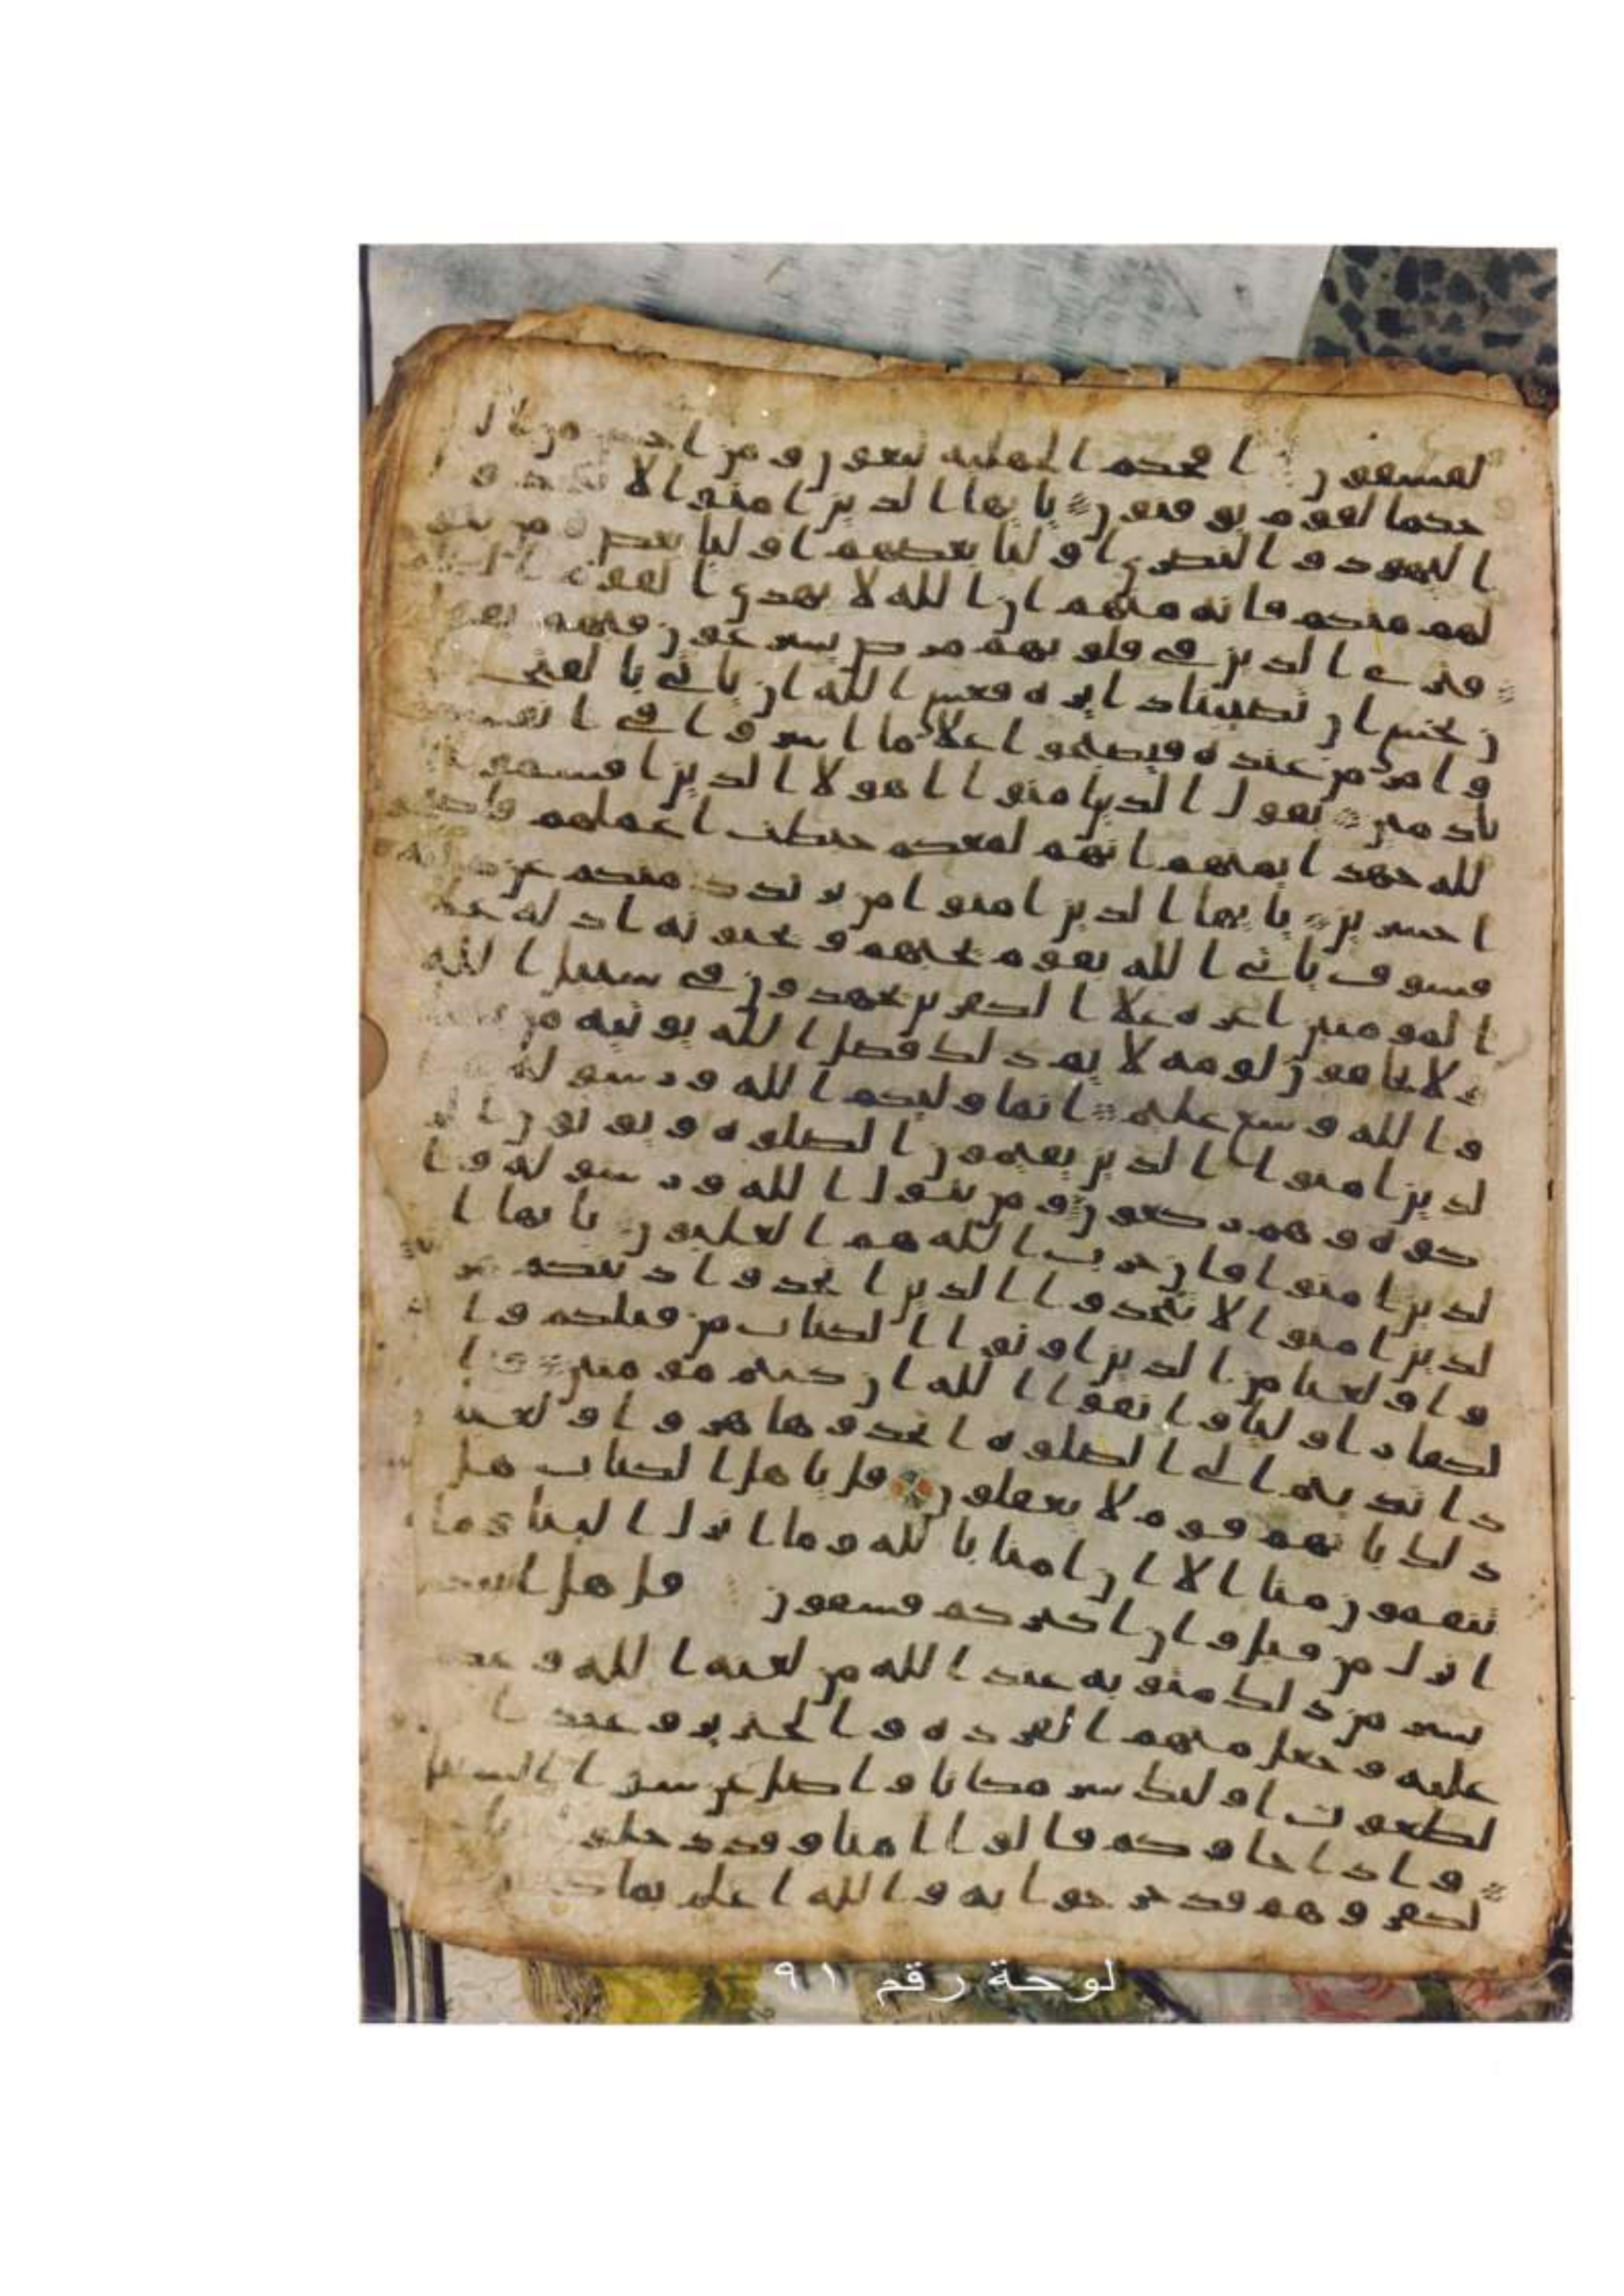 لفسقون افحكم الجهليه يبغون ومن احسن من الله
حكما لقوم يوقنون يايها الذين امنوا لا تتخذوا
اليهود والنصرى اوليا بعضهم اوليا بعض ومن يتو
لهم منكم فانه منهم ان الله لا يهدى القوم الظلمين
فترى الذين فى قلوبهم مرض يسرعون فيهم يقولو
ن نخشى ان تصيبنا دايره فعسى الله ان ياتى بالفتح
وامر من عنده فيصبحوا علا ما اسروا فى انفسهم
ندمين يقول الذين امنوا اهولا الذين اقسموا
لله جهد ايمنهم انهم لمعكم حبطت اعملهم فاصبحو
ا خسرين يايها الذين امنوا من يرتدد منكم عن دينه
فسوف ياتى الله بقوم يحبهم ويحبونه اذله على
المومنين اعزه علا الكفرين يجهدون فى سبيل الله
ولا يخافون لومه لايم ذلك فضل الله يوتيه من يشا
والله وسع عليم انما وليكم الله ورسوله وا
لذين امنوا الذين يقيمون الصلوه ويوتون الز
كوه وهم ركعون ومن يتول الله ورسوله وا
لذين امنوا فان حزب الله هم الغلبون يايها ا
لذين امنوا لا تتخذوا الذين اتخذوا دينكم هز
وا ولعبا من الذين اوتوا الكتاب من قبلكم وا
لكفار اوليا واتقوا الله ان كنتم مومنين وا
ذا نديتم الى الصلوه اتخذوها هزوا ولعبا
ذلك بانهم قوم لا يعقلون قل ياهل الكتاب هل
تنقمون منا الا ان امنا بالله وما انزل الينا وما
انزل من قبل وان اكثركم فسقون قل هل انبيكم
بشر من ذلك مثوبه عند الله من لعنه الله وغضب
عليه وجعل منهم القرده والخنزير وعبد ا
لطغوت اوليك شر مكانا واضل عن سوا السبيل
واذا جاوكم قالوا امنا وقد دخلوا با
لكفر وهم قد خرجوا به والله اعلم بما
لوحة رقم ٩١